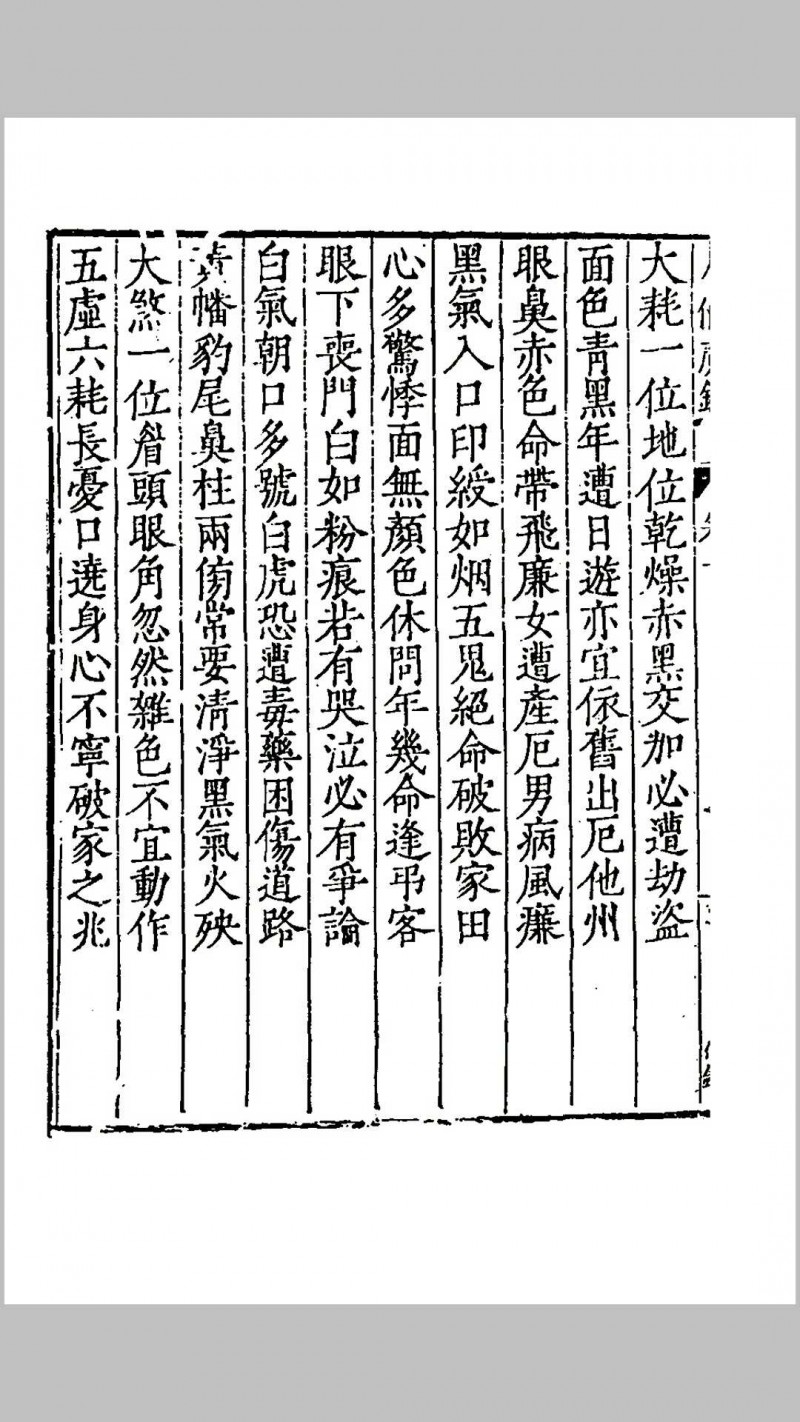 大耗一位地位乾燥赤黑交加必遭劫盜
面色靑黑年遭日遊亦宜依舊出厄他州
眼鼻赤色命帶飛廉女遭產厄男病風癉
黑氣入口印綬如烟五鬼絕命破敗家田
心多驚悸面無顏色休問年幾命逢弔客
眼下喪門白如粉痕若有哭泣必有爭論
白氣朝口多號白虎恐遭毒藥困傷道路
幡豹尾鼻柱兩傍常要清淨黑氣火殃
大煞一位眉頭眼角忽然雜色不宜動作
五虛六耗長憂口遶身心不寧破家之兆